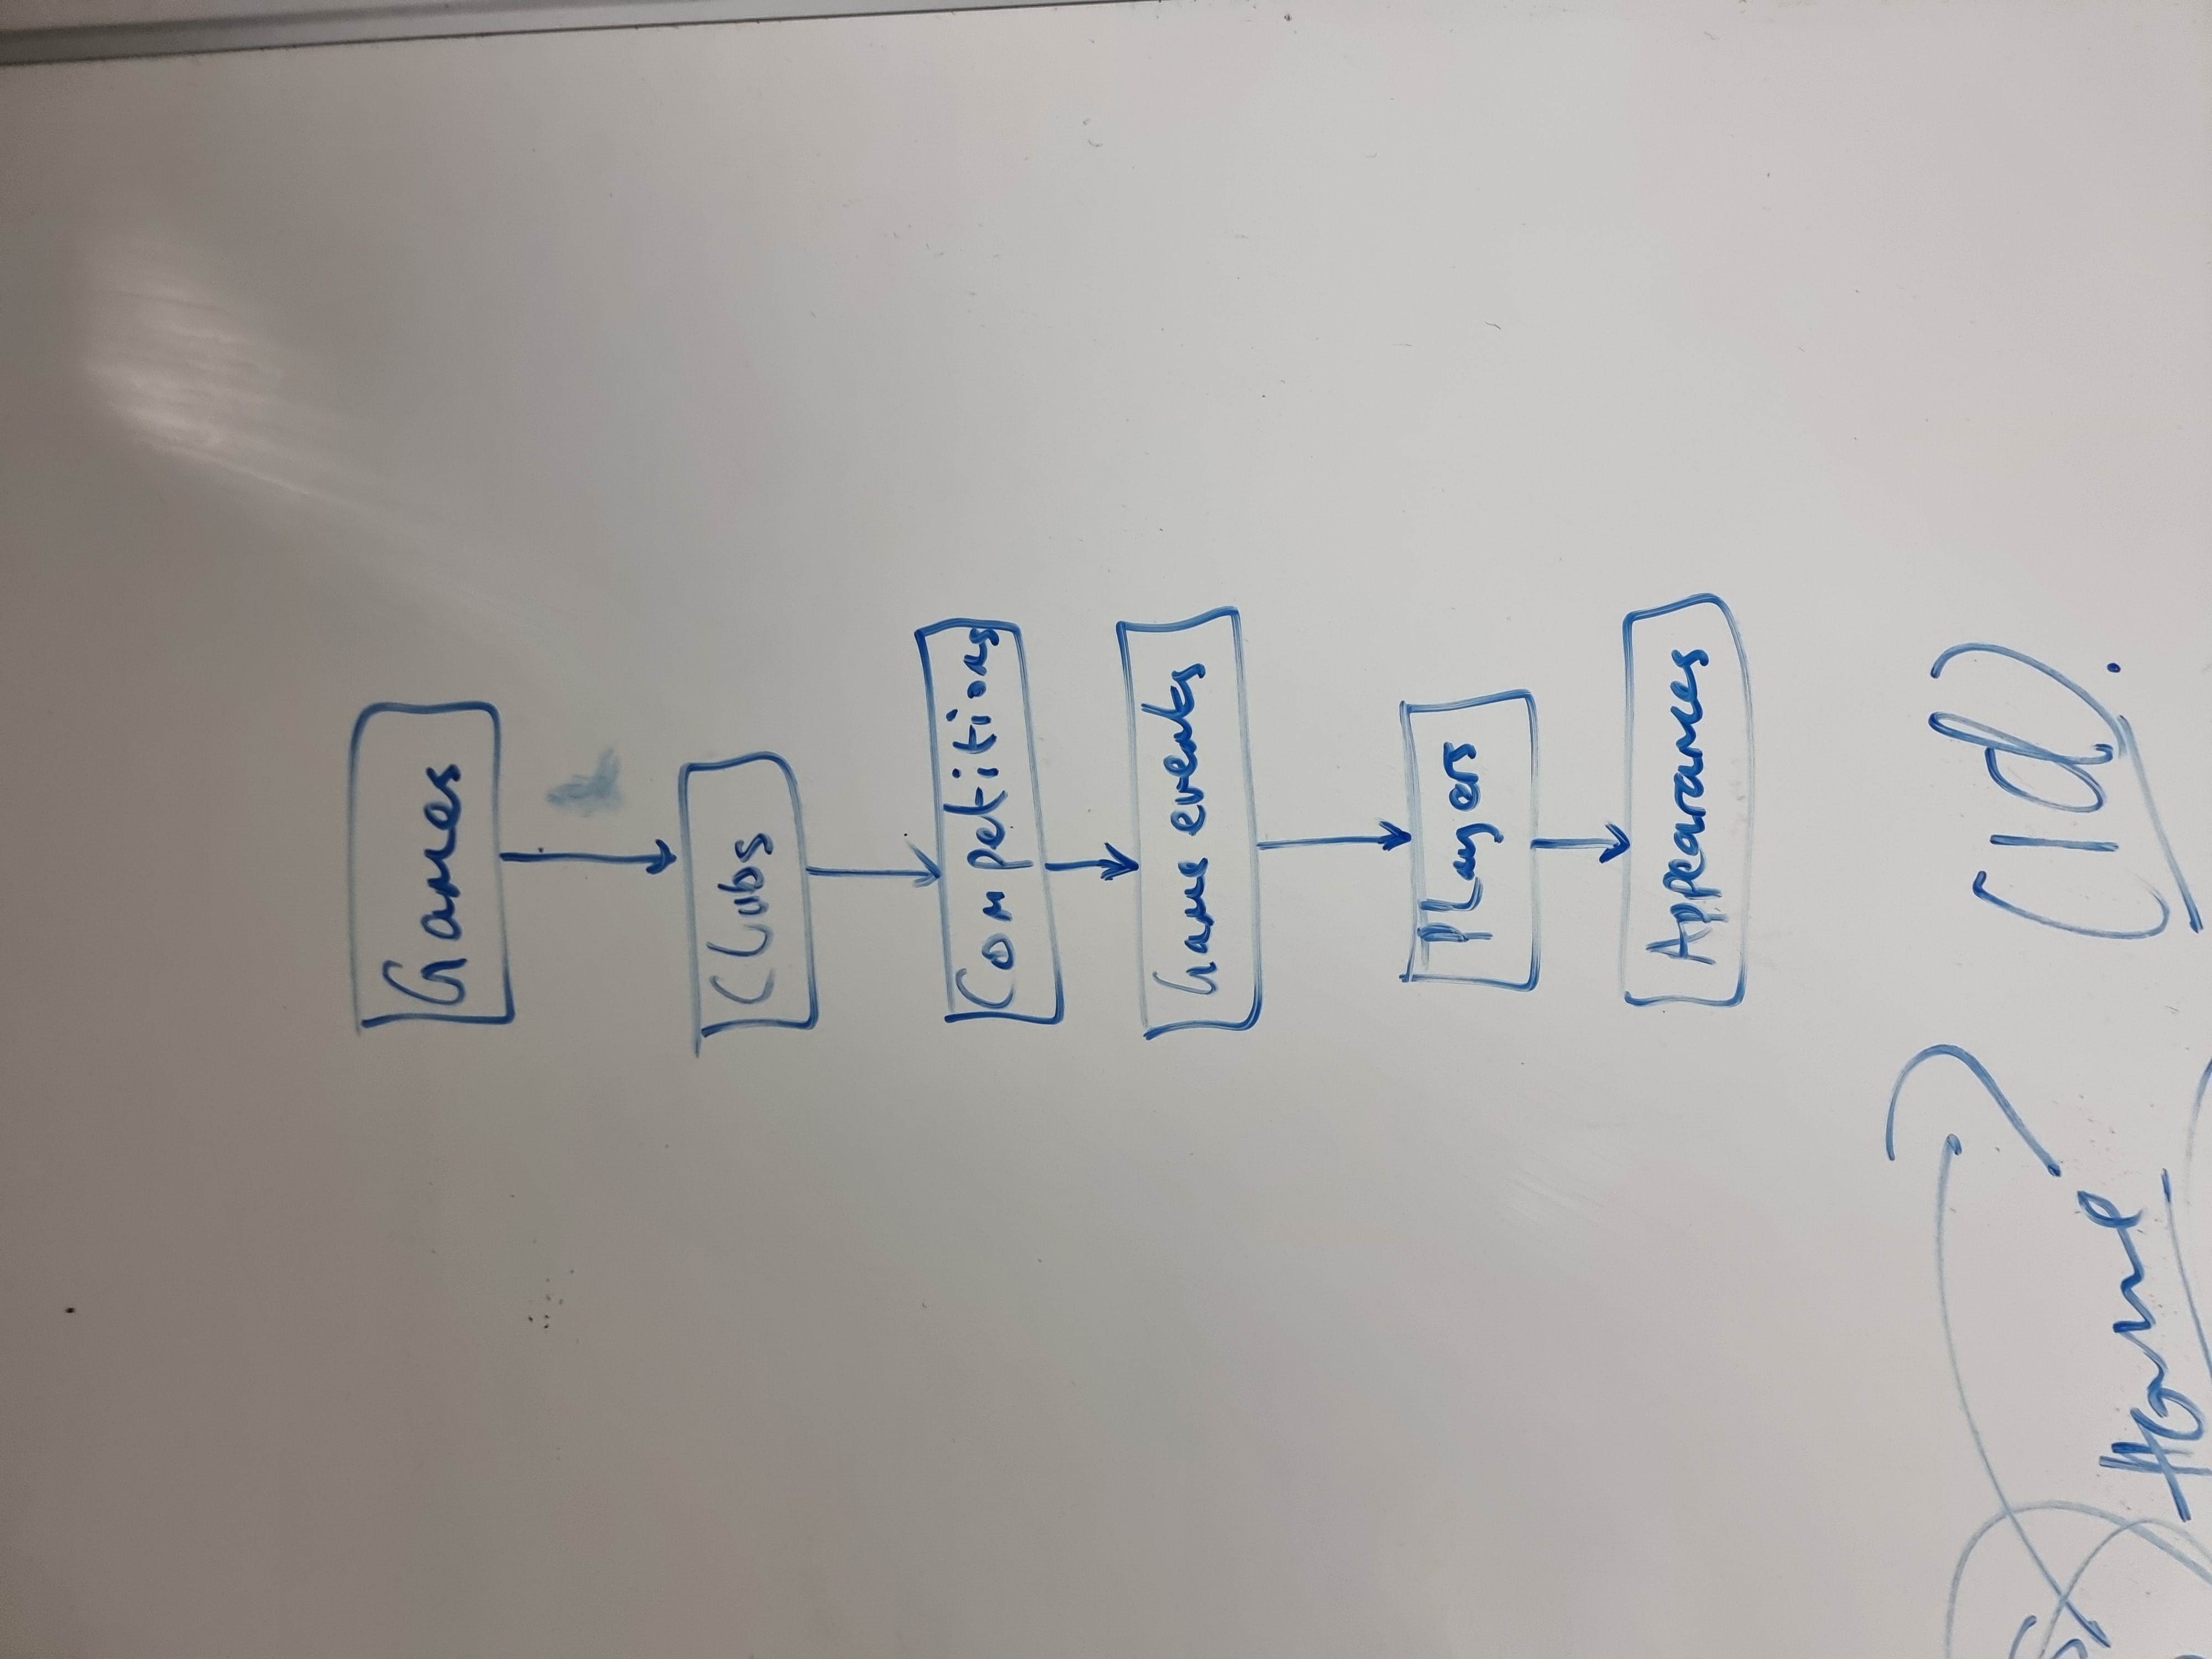 Games
Clubs
Competitions
Game events
Players
Appearances
Home
(Id).